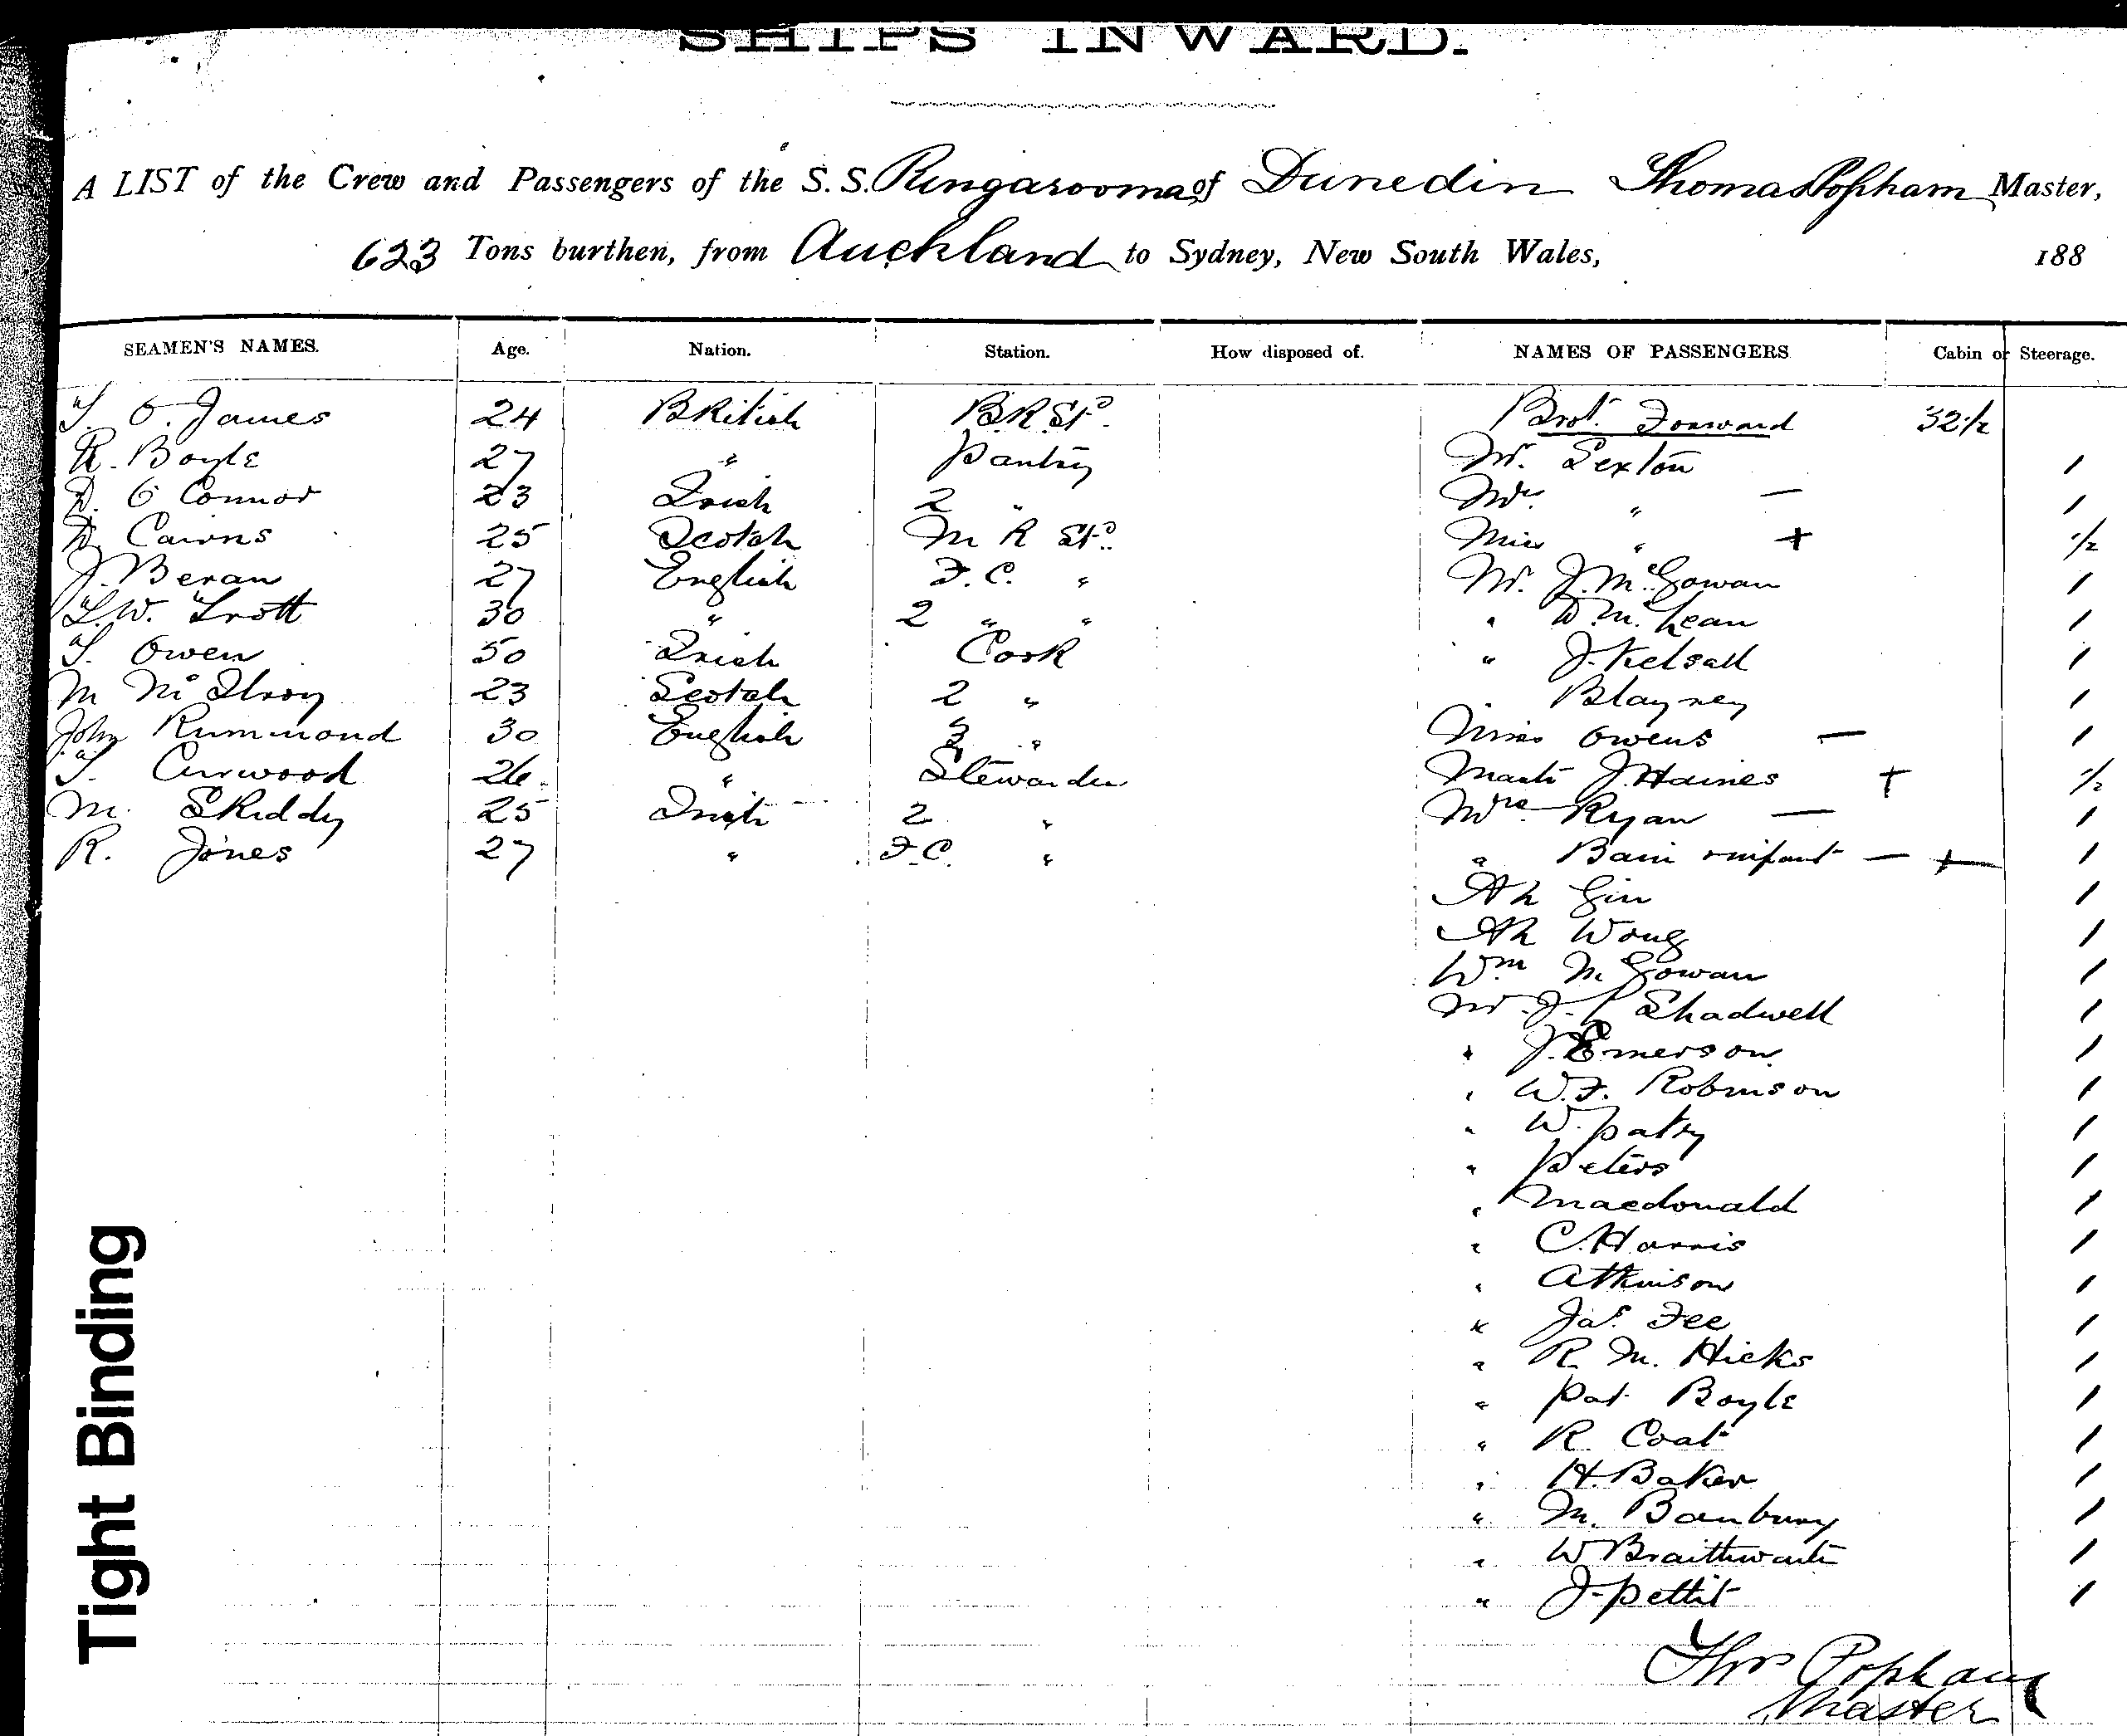 SHIPS INWARD.
A LIST of the Crew and Passengers of the S.S. Ringarooma of Dunedin Thomas Popham Master,
623 Tons burthen, from Auckland to Sydney, New South Wales, 188
SEAMEN'S NAMES. Age. Nation. Station. How disposed of. NAMES OF PASSENGERS Cabin or Steerage.
T. O. James 24 British B.R. Std. Brot. Forward 32 1/2
R. Boyle 27 " Pantry Mr. Sexton 1
D. O Connor 23 Irish 2 " Mrs. " — 1
D. Cairns 25 Scotch M R Std. Miss " + 1/2
J. Beran 27 English F.C. " Mr. J. McGowan 1
T.W. Trott 30 " 2 " " " D. McLean 1
T. Owen 50 Irish Cook " J. Kelsall 1
M McIlroy 23 Scotch 2 " " Blayney 1
John Rummond 30 English 3 " Miss Owens — 1
T. Curwood 26 " Stewardess Mastr J. Haines + 1/2
M. Skiddy 25 Irish 2 " Mrs. Ryan — 1
R. Jones 27 " F.C. " " Bain & infant — + 1
Ah Gin 1
Ah Wong 1
Wm McGowan 1
Mr. J. Shadwell 1
" J. Emerson 1
" W.F. Robinson 1
" W. Patry 1
" Peters 1
" Macdonald 1
" C. Harris 1
" Atkinson 1
" Jas. Fee 1
" R. M. Hicks 1
" Pat Boyle 1
" R. Coat 1
" H. Baker 1
" M. Banbury 1
" W Braithwaite 1
" J. Pettit 1
Thos Popham
Master
Tight Binding